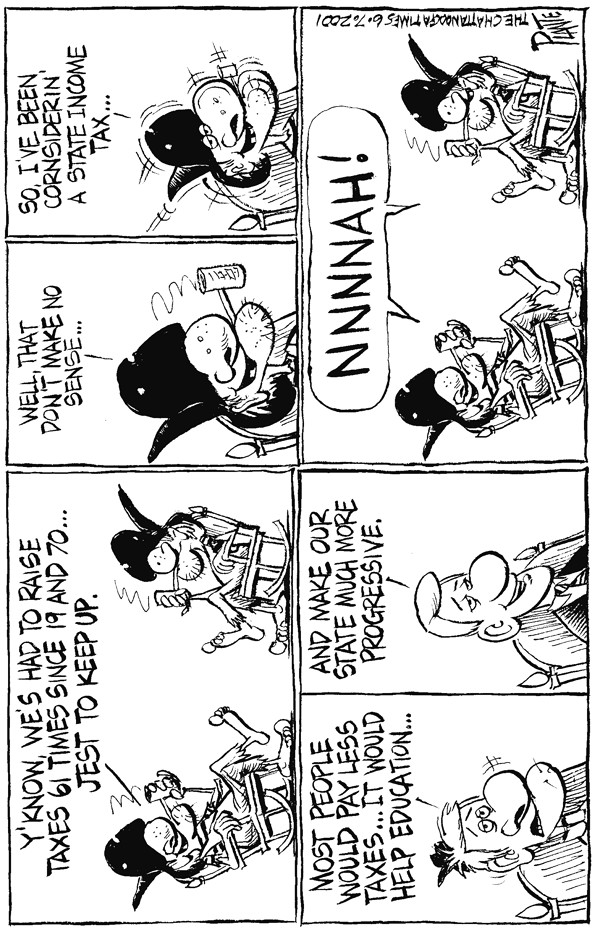 Y'KNOW, WE'S HAD TO RAISE
TAXES 61 TIMES SINCE 19 AND 70...
JEST TO KEEP UP.
WELL, THAT
DON'T MAKE NO
SENSE...
SO, I'VE BEEN
CORNSIDERIN'
A STATE INCOME
TAX...
MOST PEOPLE
WOULD PAY LESS
TAXES...IT WOULD
HELP EDUCATION...
AND MAKE OUR
STATE MUCH MORE
PROGRESSIVE.
NNNNAH!
PLANTE
THE CHATTANOOGA TIMES 6.7.2001